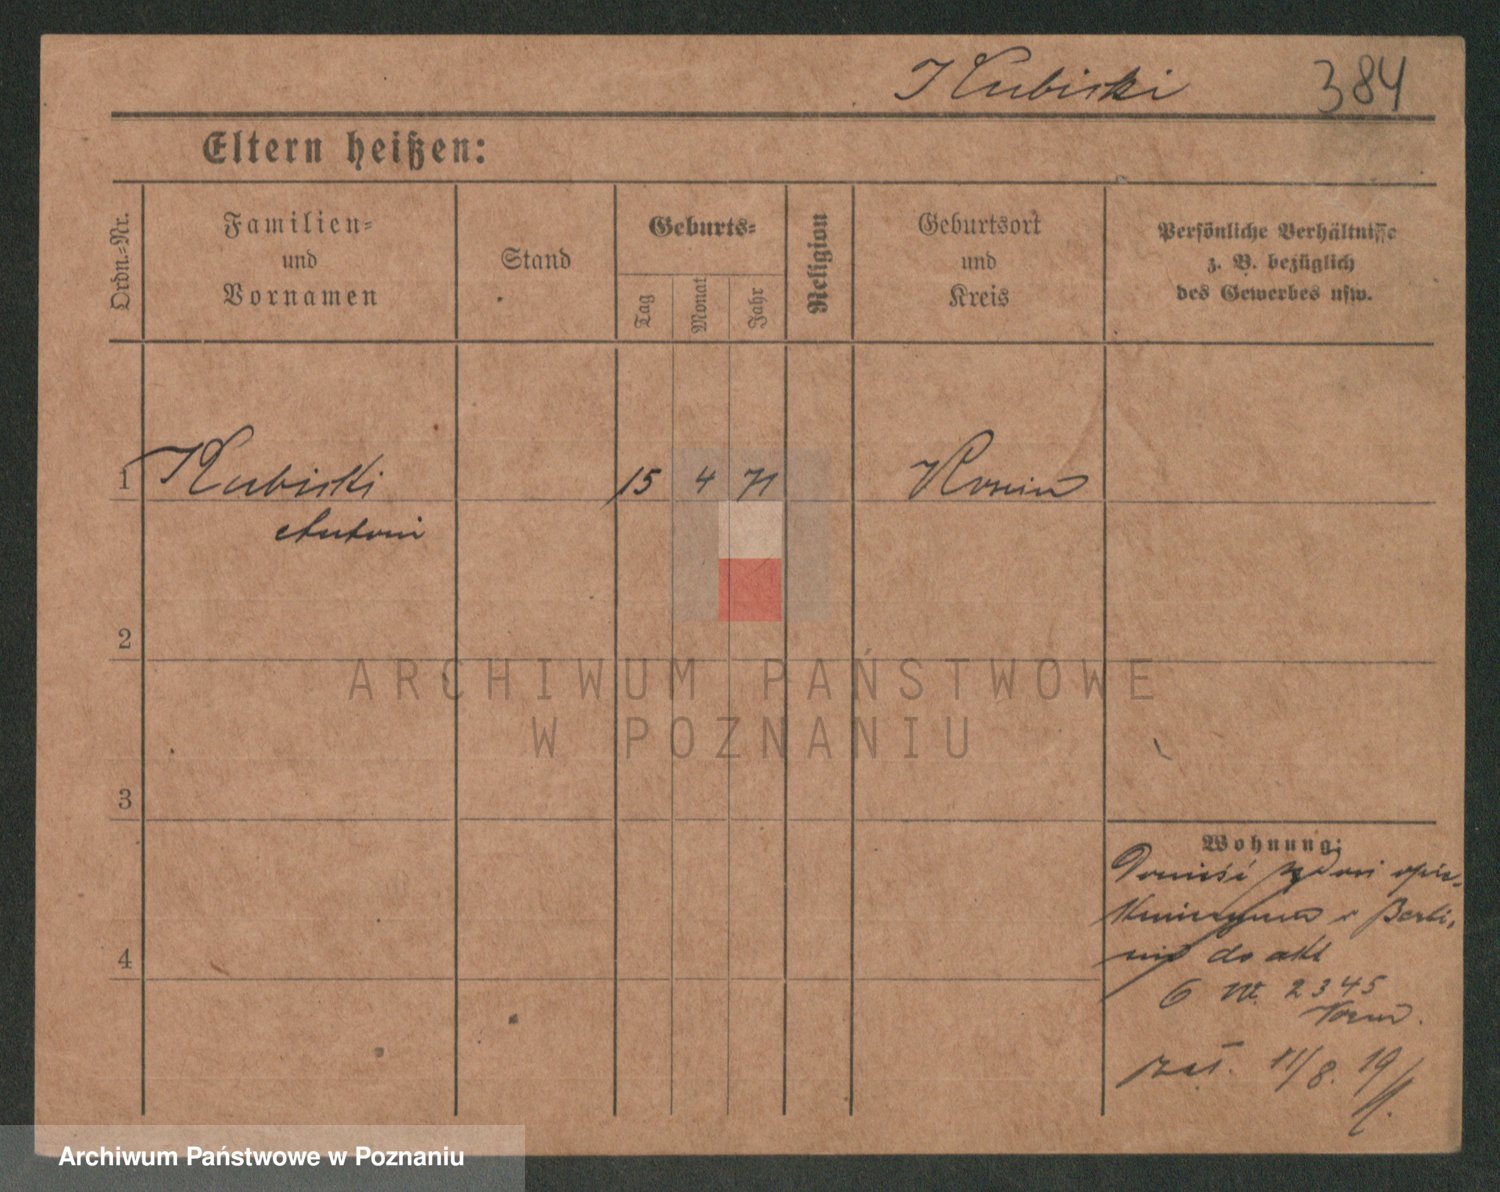 Kubicki 384
Eltern heißen:
Ordn.-Nr.
Familien-
und
Vornamen
Stand
Geburts-
Tag
Monat
Jahr
Religion
Geburtsort
und
Kreis
Persönliche Verhältnisse
z. B. bezüglich
des Gewerbes usw.
1 Kubicki 15 4 71
Antoni
2
3
4
Wohnung:
Donieść sądowi opie-
w Berli-
nie do akt
6 VII. 2345
11/8. 19
ARCHIWUM PAŃSTWOWE
W POZNANIU
Archiwum Państwowe w Poznaniu